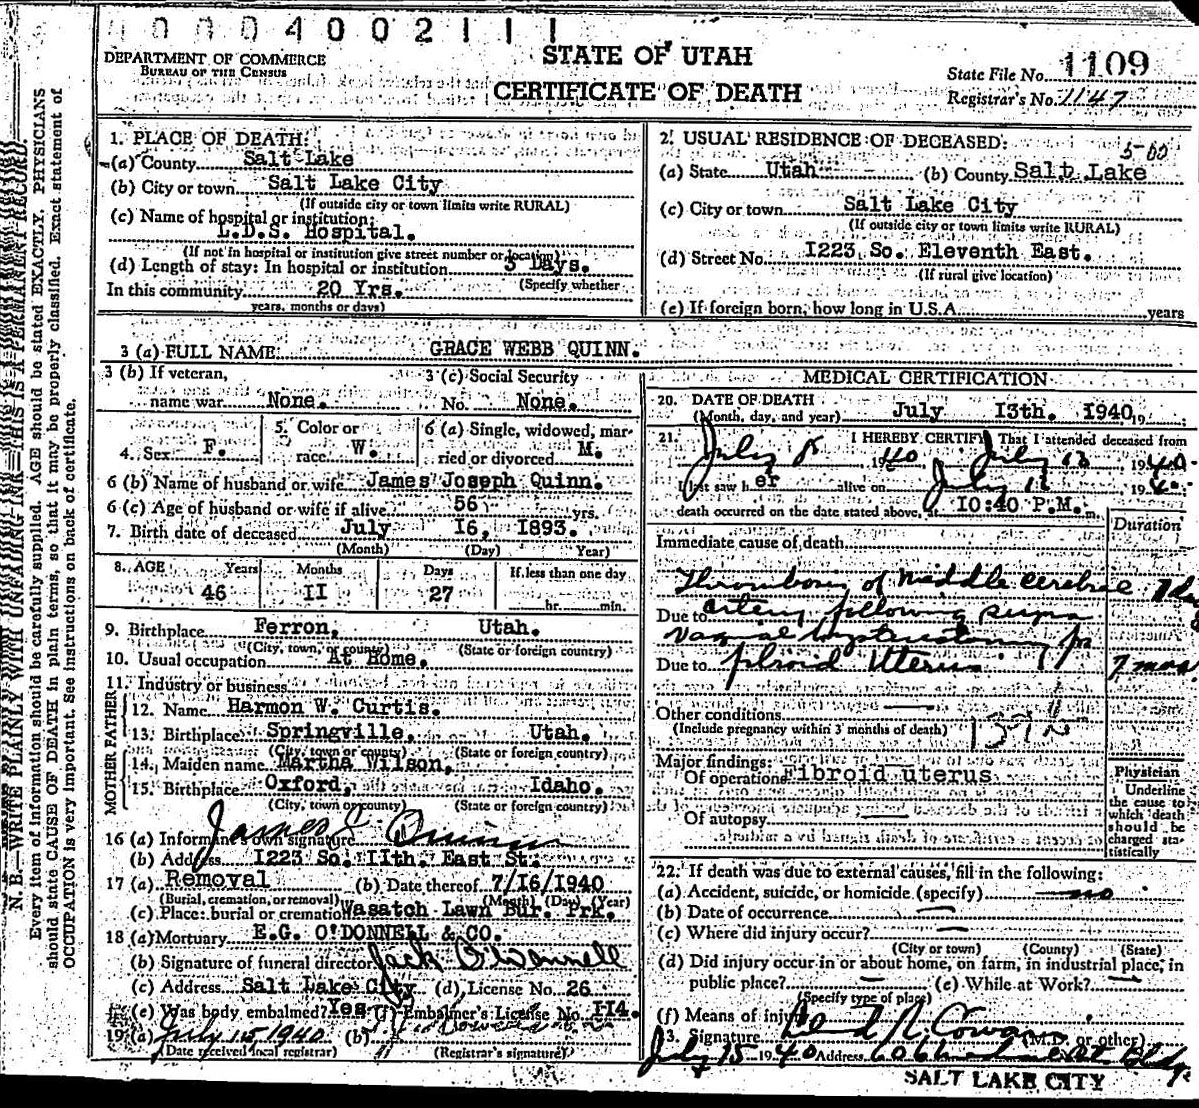 0 0 0 4 0 0 2 1 1 1
DEPARTMENT OF COMMERCE
BUREAU OF THE CENSUS
STATE OF UTAH
CERTIFICATE OF DEATH
State File No. 1109
Registrar's No. 1147
1. PLACE OF DEATH:
(a) County Salt Lake
(b) City or town Salt Lake City
(If outside city or town limits write RURAL)
(c) Name of hospital or institution:
L.D.S. Hospital.
(If not in hospital or institution give street number or location)
(d) Length of stay: In hospital or institution 5 Days.
(Specify whether
In this community 20 Yrs.
years, months or days)
2. USUAL RESIDENCE OF DECEASED:
(a) State Utah (b) County Salt Lake
(c) City or town Salt Lake City
(If outside city or town limits write RURAL)
(d) Street No. I223 So. Eleventh East.
(If rural give location)
(e) If foreign born, how long in U.S.A. years
3 (a) FULL NAME GRACE WEBB QUINN.
3 (b) If veteran, name war None.
3 (c) Social Security No. None.
4. Sex F.
5. Color or race W.
6 (a) Single, widowed, married or divorced M.
6 (b) Name of husband or wife James Joseph Quinn.
6 (c) Age of husband or wife if alive 56 yrs.
7. Birth date of deceased July I6, I893.
(Month) (Day) Year)
8. AGE Years Months Days If less than one day
46 II 27 hr. min.
9. Birthplace Ferron, Utah.
(City, town, or county) (State or foreign country)
10. Usual occupation At Home.
11. Industry or business
FATHER
12. Name Harmon W. Curtis.
13. Birthplace Springville, Utah.
(City, town or county) (State or foreign country)
MOTHER
14. Maiden name Martha Wilson,
15. Birthplace Oxford, Idaho.
(City, town or county) (State or foreign country)
16 (a) Informant's own signature James Quinn
(b) Address I223 So. IIth. East St.
17 (a) Removal (b) Date thereof 7/I6/I940
(Burial, cremation, or removal) (Month) (Day) (Year)
(c) Place: burial or cremation Wasatch Lawn Bur. Prk.
18 (a) Mortuary E.G. O'DONNELL & CO.
(b) Signature of funeral director Jack O'Donnell
(c) Address Salt Lake City (d) License No. 26
(e) Was body embalmed? Yes (f) Embalmer's License No. II4.
19 (a) July 15 1940 (b)
(Date received local registrar) (Registrar's signature)
MEDICAL CERTIFICATION
20. DATE OF DEATH
(Month, day, and year) July I3th. I940, 19
21. I HEREBY CERTIFY, That I attended deceased from
July 8 1940 July 13 1940.
I last saw h er alive on July 13 1940.
death occurred on the date stated above, at I0:40 P.M. m.
Duration
Immediate cause of death
Thrombosis of middle cerebral 1 day
Due to artery following supra
vaginal hysterectomy for
Due to fibroid uterus 7 mos.
Other conditions
(Include pregnancy within 3 months of death)
Major findings:
Of operations Fibroid uterus
Of autopsy
Physician
Underline the cause to which death should be charged statistically
22. If death was due to external causes, fill in the following:
(a) Accident, suicide, or homicide (specify) no
(b) Date of occurrence
(c) Where did injury occur?
(City or town) (County) (State)
(d) Did injury occur in or about home, on farm, in industrial place, in
public place? (e) While at Work?
(Specify type of place)
(f) Means of injury
23. Signature R. Cowans (M.D. or other)
July 15 1940 Address 606 Medical Art Bldg.
SALT LAKE CITY
N. B.—WRITE PLAINLY WITH UNFADING INK—THIS IS A PERMANENT RECORD.
Every item of information should be carefully supplied. AGE should be stated EXACTLY. PHYSICIANS
should state CAUSE OF DEATH in plain terms, so that it may be properly classified. Exact statement of
OCCUPATION is very important. See instructions on back of certificate.